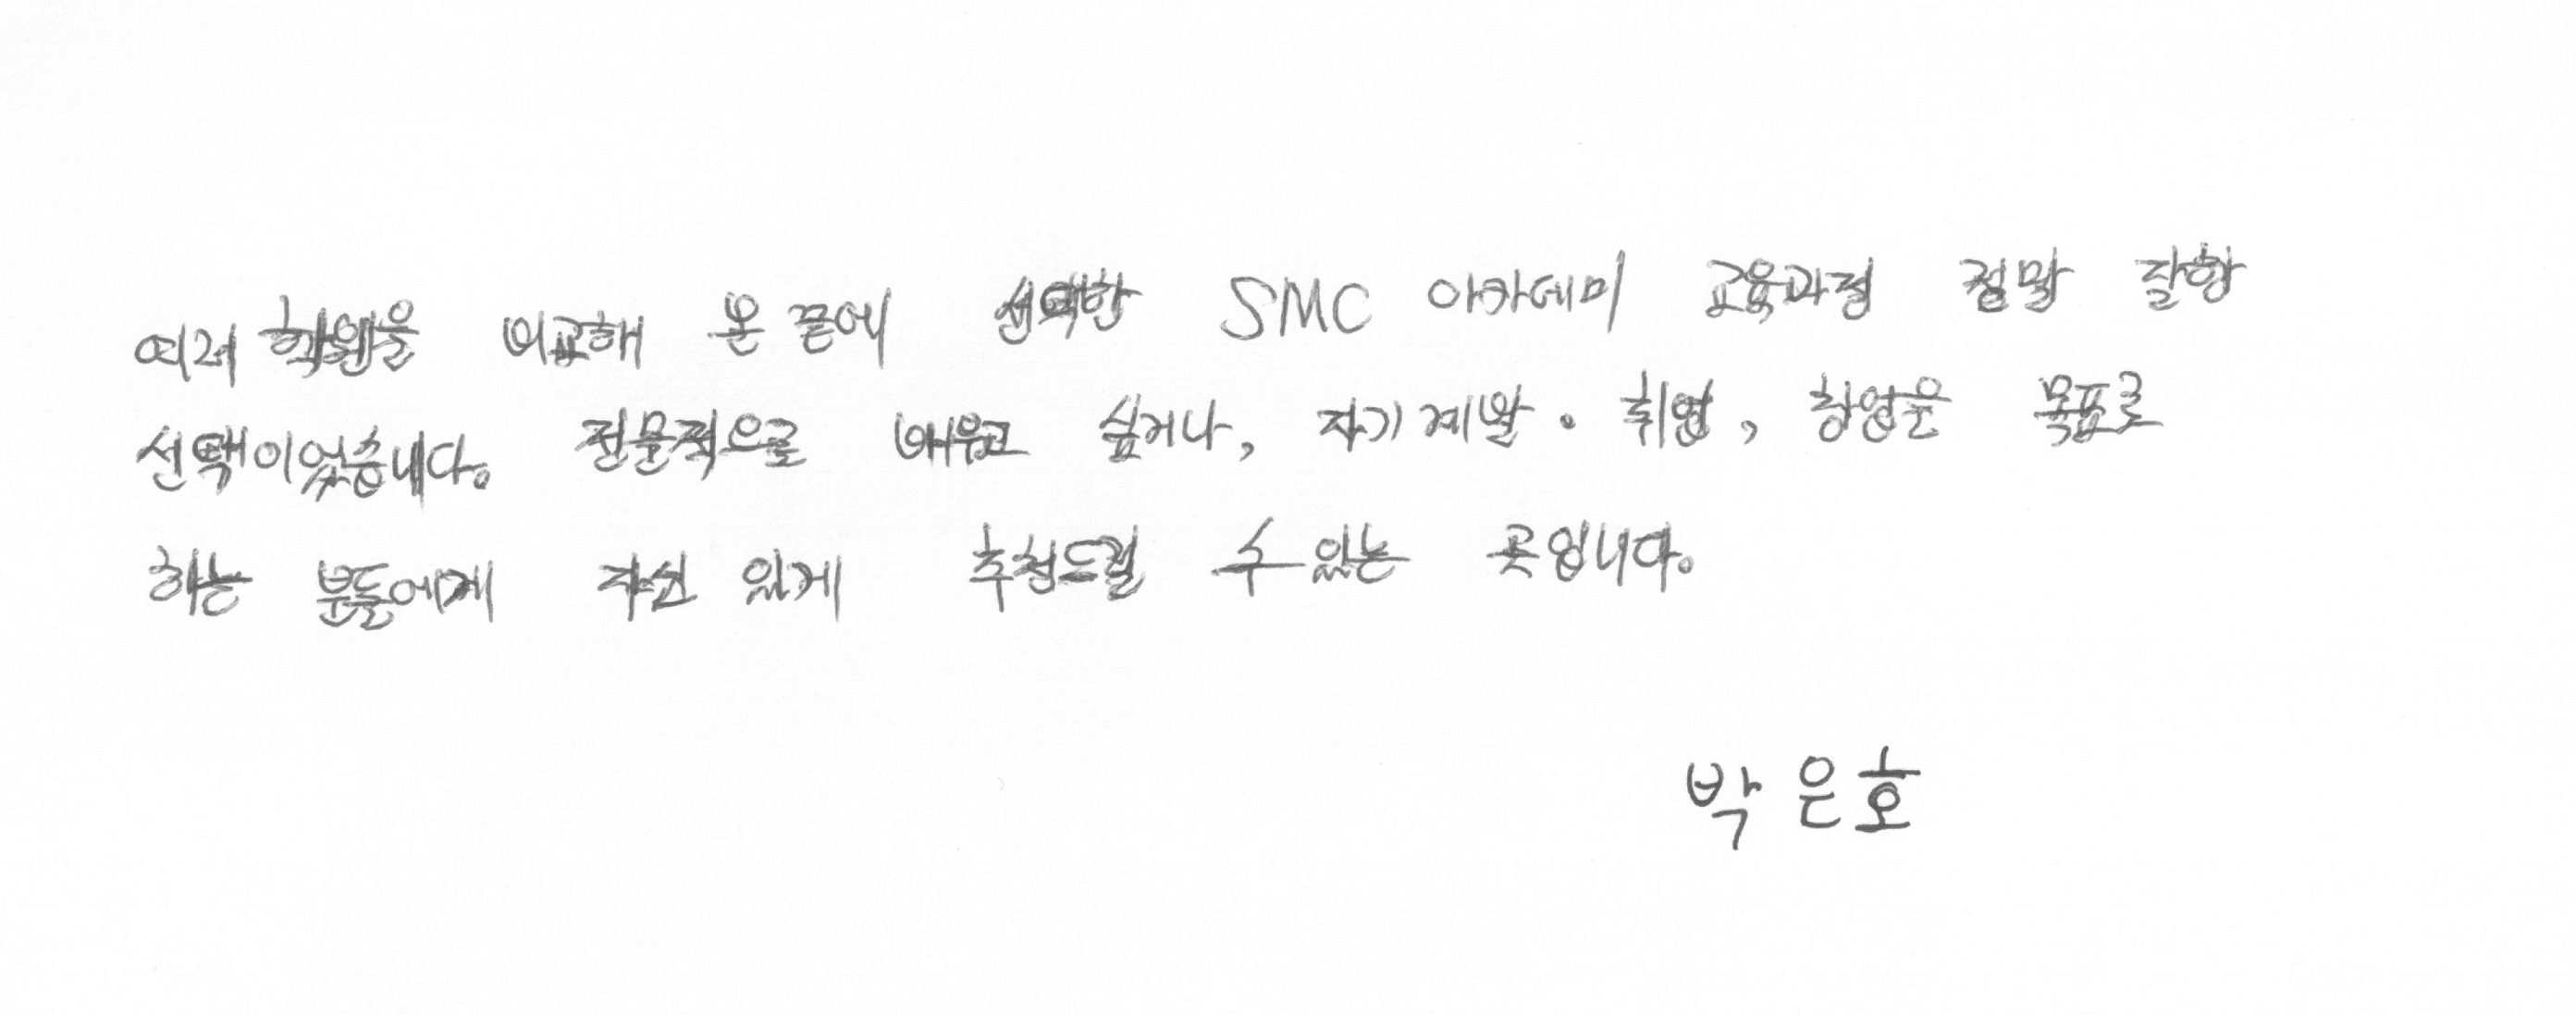 여러 학원을 비교해 온 끝에 선택한 SMC 아카데미 교육과정 정말 잘한
선택이었습니다. 전문적으로 배우고 싶거나, 자기계발·취업, 창업을 목표로
하는 분들에게 자신 있게 추천드릴 수 있는 곳입니다.
박은호